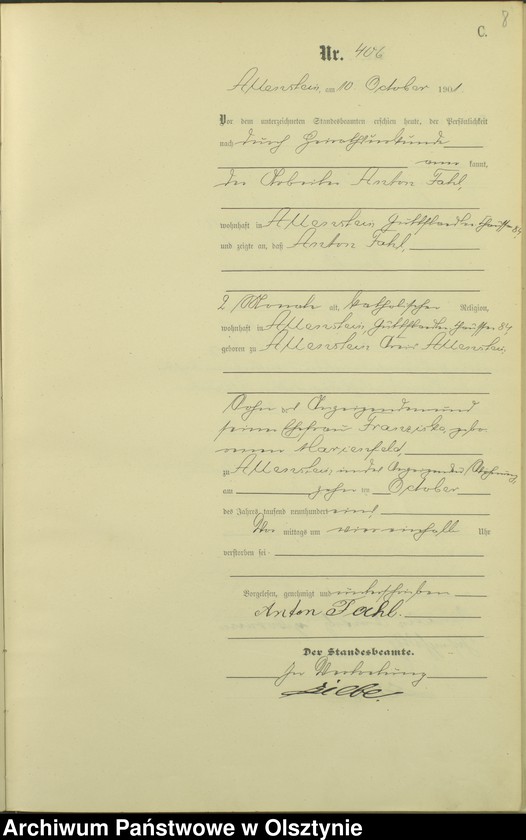 8
C.
Nr. 406
Allenstein, am 10. October 1901.
Vor dem unterzeichneten Standesbeamten erschien heute, der Persönlichkeit
nach durch Heirathsurkunde
aner kannt,
der Arbeiter Anton Fahl,
wohnhaft in Allenstein, Guttstaedter Chaussee 84
und zeigte an, daß Anton Fahl,
2 Monate alt, katholischer Religion,
wohnhaft in Allenstein, Guttstaedter Chaussee 84
geboren zu Allenstein, Kreis Allenstein,
Sohn des Anzeigenden und
seiner Ehefrau Franziska, gebo-
renen Marienfeld,
zu Allenstein, in des Anzeigenden Wohnung,
am zehnten October
des Jahres tausend neunhundert eins
Vor mittags um Uhr
verstorben sei
Vorgelesen, genehmigt und unterschrieben
Anton Fahl.
Der Standesbeamte.
In Vertretung
Archiwum Państwowe w Olsztynie